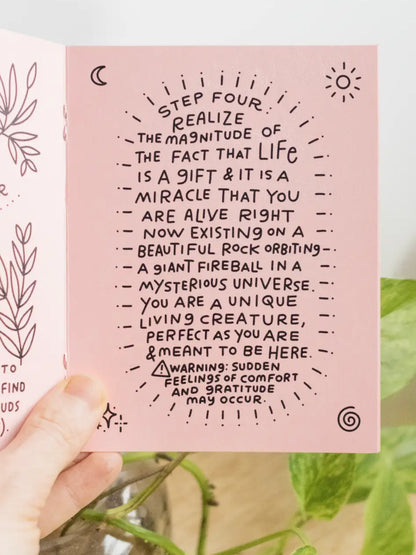 STEP FOUR:
REALIZE
THE MAGNITUDE OF
THE FACT THAT LIFE
IS A GIFT & IT IS A
MIRACLE THAT YOU
ARE ALIVE RIGHT
NOW EXISTING ON A
BEAUTIFUL ROCK ORBITING
A GIANT FIREBALL IN A
MYSTERIOUS UNIVERSE.
YOU ARE A UNIQUE
LIVING CREATURE,
PERFECT AS YOU ARE
& MEANT TO BE HERE.
WARNING: SUDDEN
FEELINGS OF COMFORT
AND GRATITUDE
MAY OCCUR.
TO
FIND